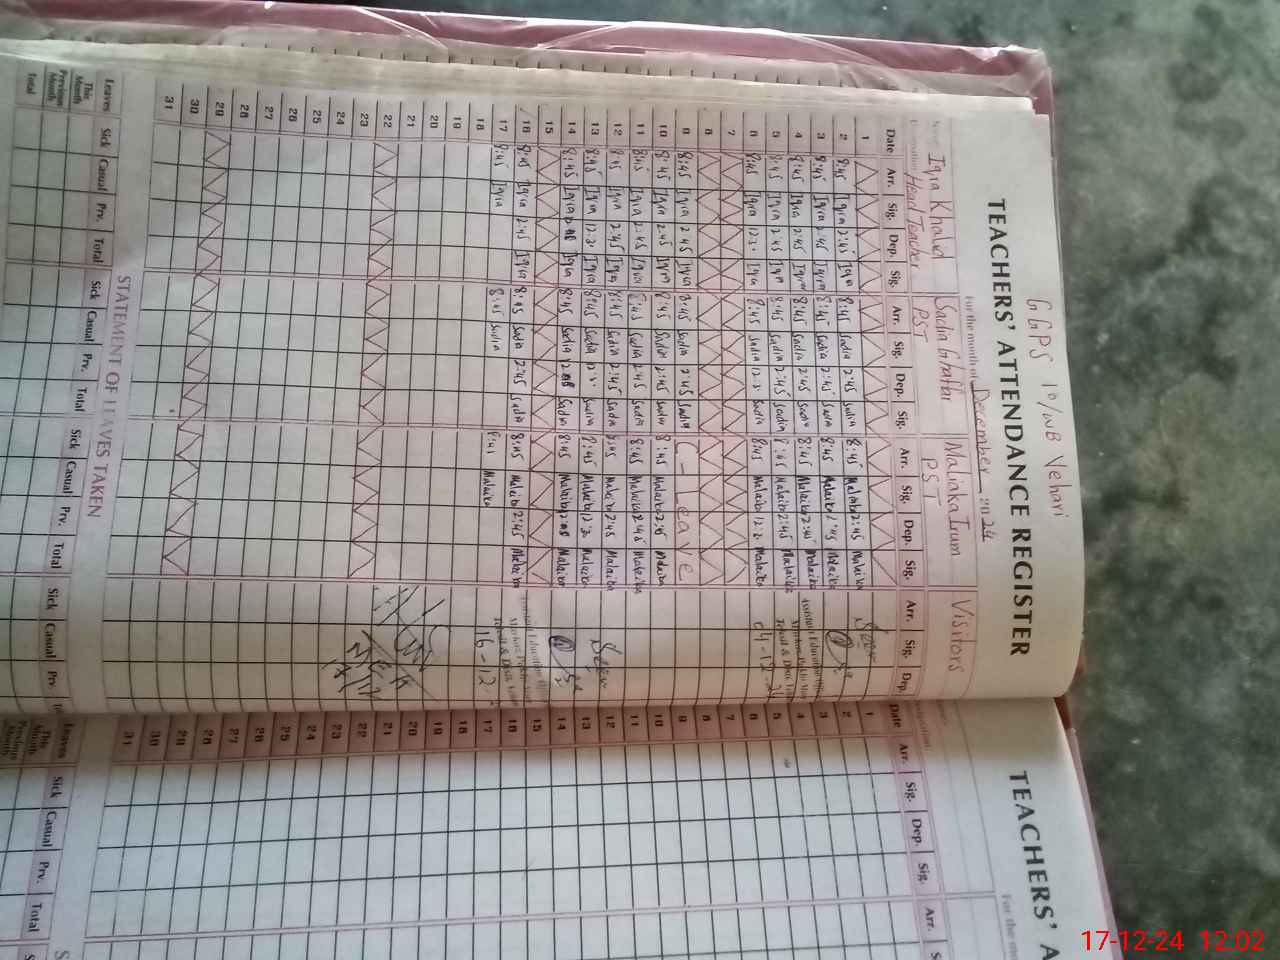 GGPS 10/WB Vehari
TEACHERS' ATTENDANCE REGISTER
For the month of December 2024
Iqra Khalid Sadia Ghaffar Malaika Irum Visitors
Head Teacher PST PST
Date Arr. Sig. Dep. Sig. Arr. Sig. Dep. Sig. Arr. Sig. Dep. Sig. Arr. Sig. Dep.
1
2 8:45 Iqra 2:45 Iqra 8:45 Sadia 2:45 Sadia 8:45 Malaika 2:45 Malaika Seen
3 8:45 Iqra 2:45 Iqra 8:45 Sadia 2:45 Sadia 8:45 Malaika 2:45 Malaika
4 8:45 Iqra 2:45 Iqra 8:45 Sadia 2:45 Sadia 8:45 Malaika 2:45 Malaika Assistant Education
5 8:45 Iqra 2:45 Iqra 8:45 Sadia 2:45 Sadia 8:45 Malaika 2:45 Malaika
6 8:45 Iqra 12:30 Iqra 8:45 Sadia 12:30 Sadia 8:45 Malaika 12:30 Malaika 04-12-24
7
8
9 8:45 Iqra 2:45 Iqra 8:45 Sadia 2:45 Sadia C-Leave
10 8:45 Iqra 2:45 Iqra 8:45 Sadia 2:45 Sadia 8:45 Malaika 2:45 Malaika
11 8:45 Iqra 2:45 Iqra 8:45 Sadia 2:45 Sadia 8:45 Malaika 2:45 Malaika
12 8:45 Iqra 2:45 Iqra 8:45 Sadia 2:45 Sadia 8:45 Malaika 2:45 Malaika Seen
13 8:45 Iqra 12:30 Iqra 8:45 Sadia 12:30 Sadia 8:45 Malaika 12:30 Malaika
14 8:45 Iqra Iqra 8:45 Sadia Sadia 8:45 Malaika Malaika
15
16 8:45 Iqra 2:45 Iqra 8:45 Sadia 2:45 Sadia 8:45 Malaika 2:45 Malaika
17 8:45 Iqra 8:45 Sadia 8:45 Malaika 16-12
18
19
20
21
22
23
24
25
26
27
28
29
30
31
STATEMENT OF LEAVES TAKEN
Leaves Sick Casual Prv. Total Sick Casual Prv. Total Sick Casual Prv. Total Sick Casual Prv.
This Month
Previous Month
Total
TEACHERS' A
For the mo
Date Arr. Sig. Dep. Sig. Arr.
1
2
3
4
5
6
7
8
9
10
11
12
13
14
15
16
17
18
19
20
21
22
23
24
25
26
27
28
29
30
31
Leaves Sick Casual Prv. Total
This Month
Previous Month
17-12-24 12:02